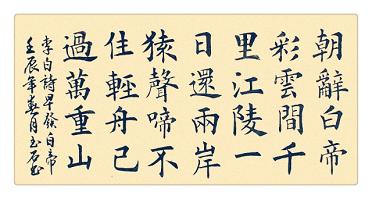 朝辭白帝
彩雲間千
里江陵一
日還兩岸
猿聲啼不
住輕舟已
過萬重山
李白詩早發白帝
壬辰年春月玉石书